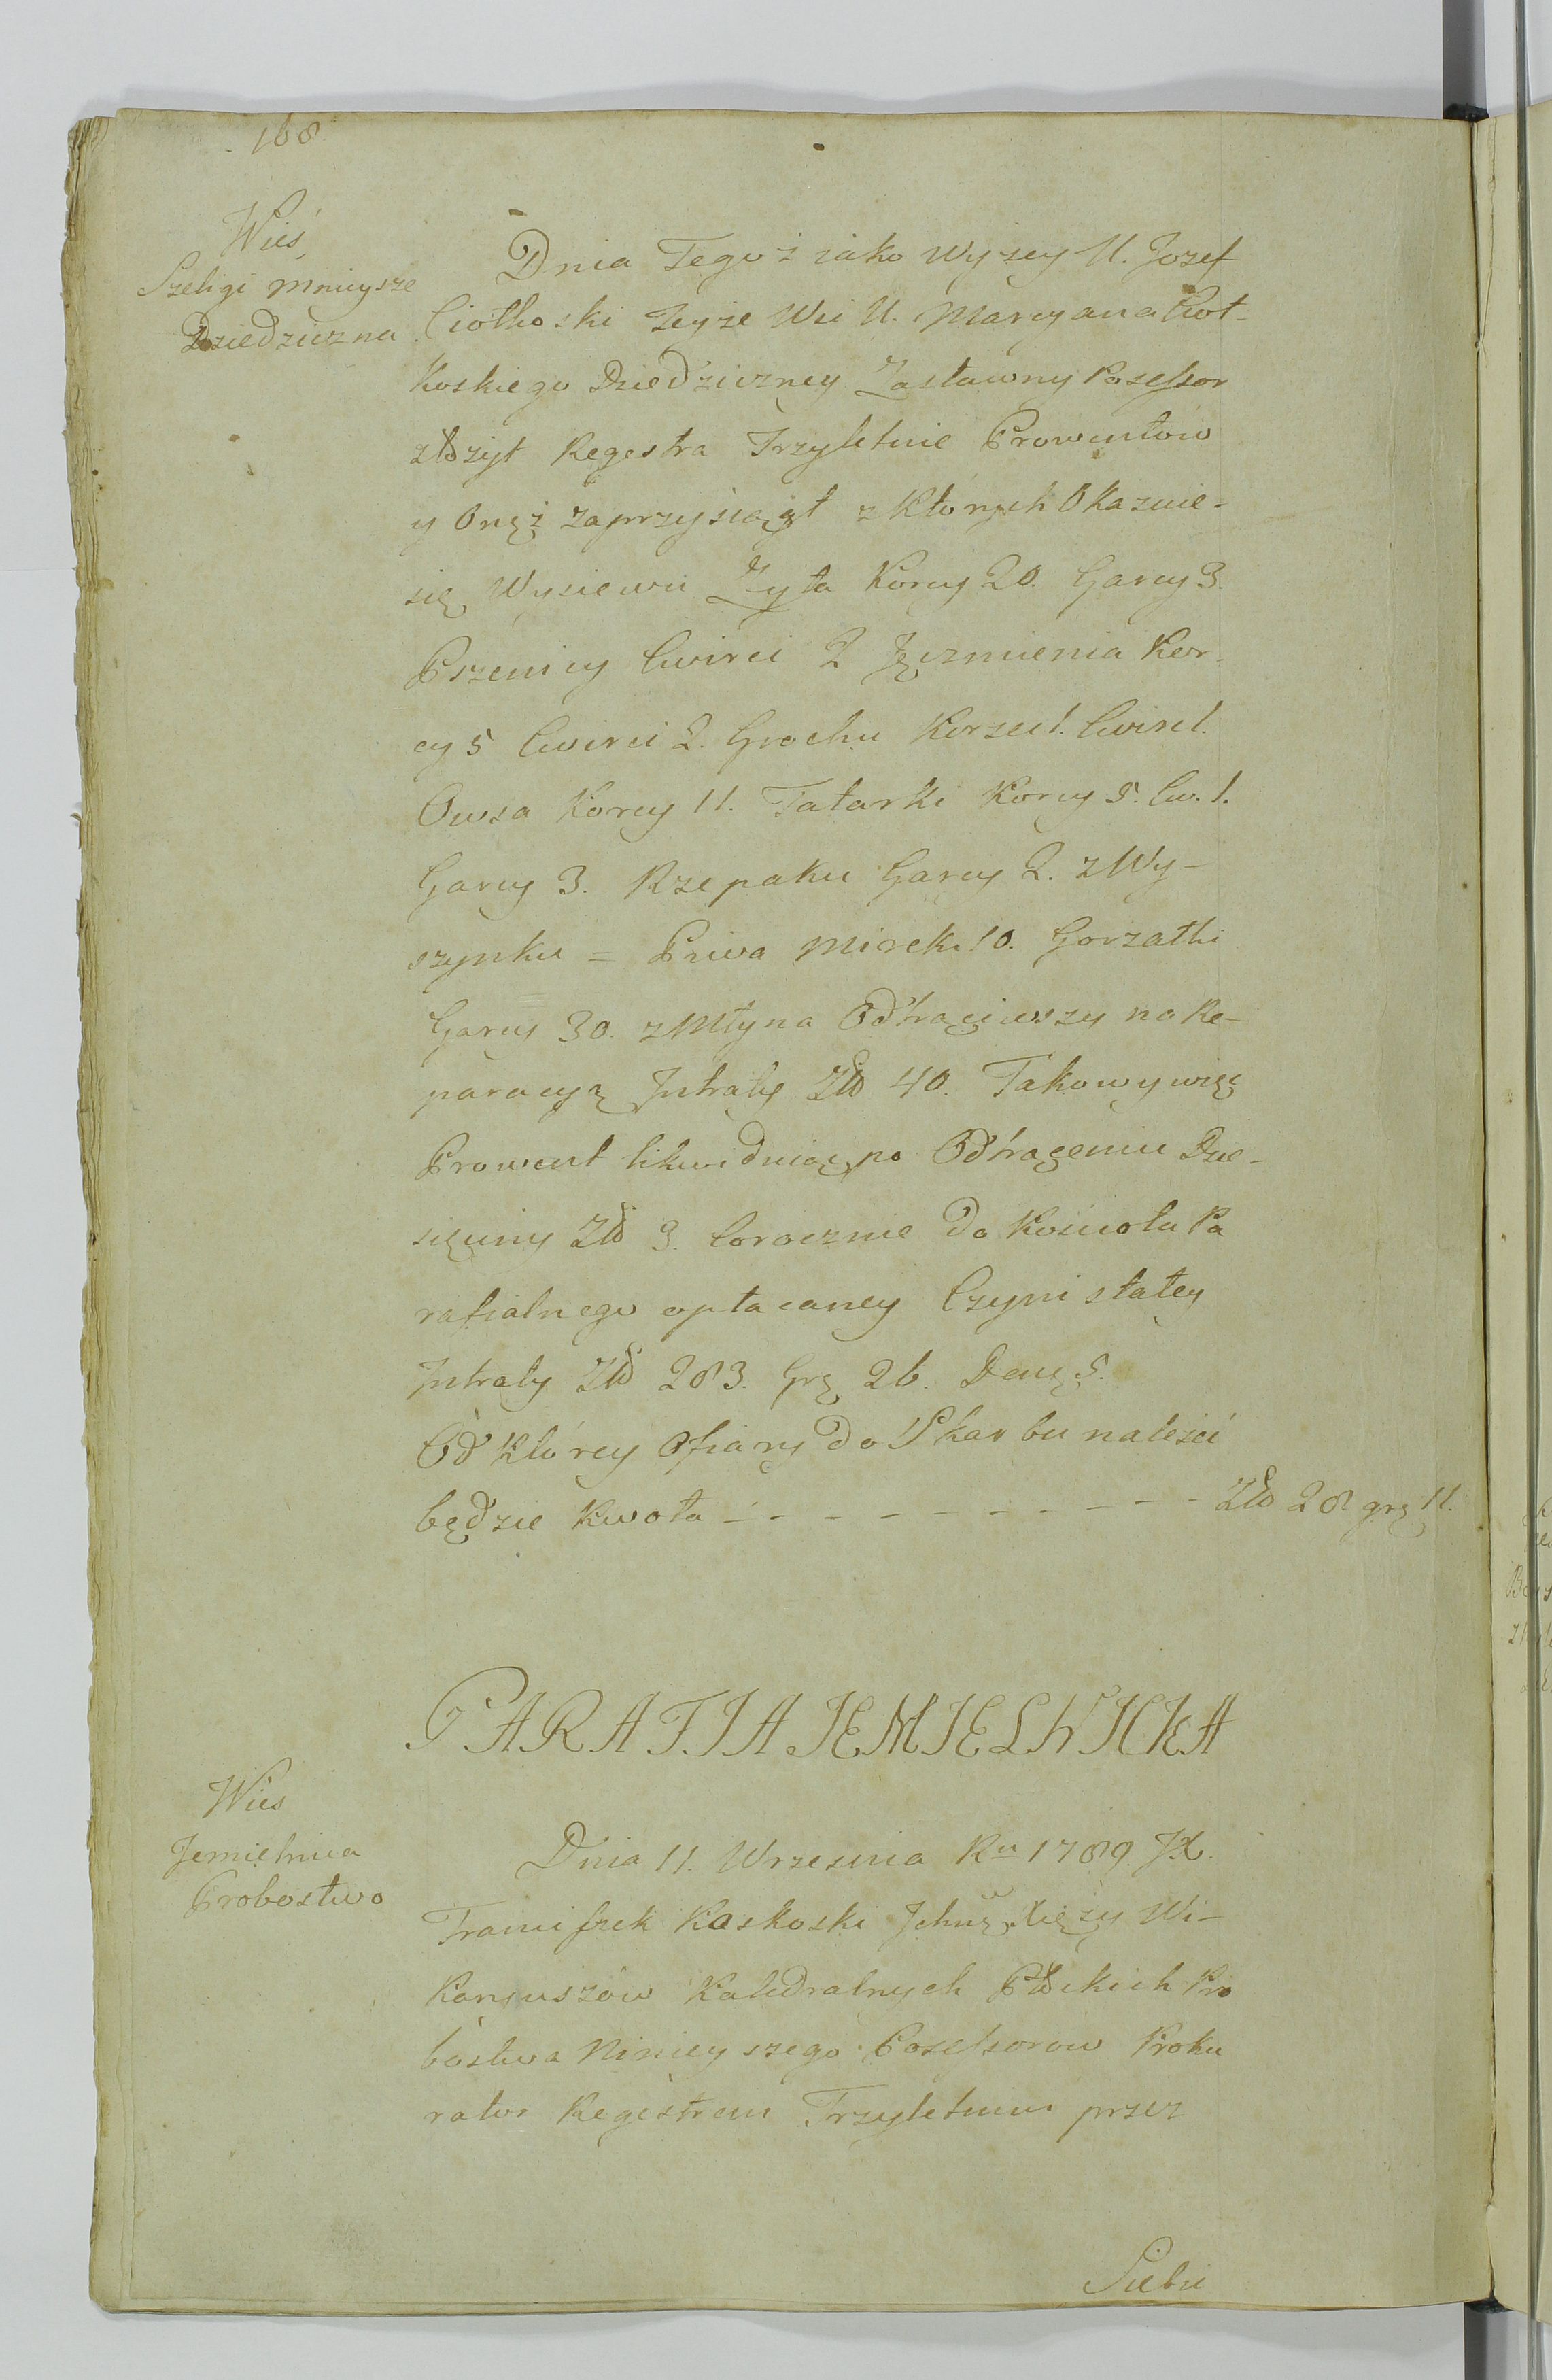 168.
Wieś
Szeligi Mnieysze
Dziedziczna
Dnia Tegoż iako wyżey U. Jozef
Ciołkoski Teyże Wsi U. Marcyana Cioł-
koskiego Dziedziczney Zastawny Posessor
złożył Regestra Trzyletnie Prowentow
y Oneż zaprzysiągł z których Okazuie-
się Wysiewu Zyta Korcy 20. Garcy 3.
Pszenicy Cwierci 2 Jęczmienia Kor-
cy 5 Cwierci 2. Grochu Korzec 1. Cwierć 1.
Owsa Korcy 11. Tatarki Korcy 5. Cw. 1.
Garcy 3. Rzepaku Garcy 2. z Wy-
szynku = Piwa Mirek 10. Gorzałki
Garcy 30. z Młyna Odtrąciwszy na Re-
paracyą Intraty Zło 40. Takowy więc
Prowent likwiduiąc po Odtrąceniu Dzie-
sięciny Zło 3. Corocznie do Kościoła Pa
rafialnego opłacaney Czyni stałey
Intraty Zło 283. Grę 26. Denę 5.
Od którey Ofiary do Skarbu należeć
będzie Kwota - - - - - - - - - - Zło 28 grę 11.
PARAFIA JEMIELNICKA
Wieś
Jemielnica
Probostwo
Dnia 11. Wrzesnia Ru 1789 JX.
Franciszek Kaskoski Ichmę Xięży Wi-
karyuszów Katedralnych Płockich Pro
bostwa Ninieyszego Posessorow Proku
rator Regestrem Trzyletnim przez
Siebie